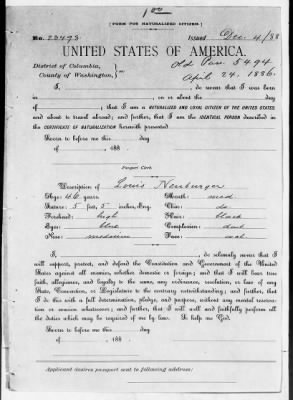 1.00
[FORM FOR NATURALIZED CITIZEN.]
No. 23493 Issued Dec. 4/88
UNITED STATES OF AMERICA.
District of Columbia, Old Pass. 5494
County of Washington, } ss April 24, 1886.
I, , do swear that I was born
in on or about the day
of , that I am a NATURALIZED AND LOYAL CITIZEN OF THE UNITED STATES
and about to travel abroad; and further, that I am the IDENTICAL PERSON described in
the CERTIFICATE OF NATURALIZATION herewith presented.
Sworn to before me this day
of , 188 .
Passport Clerk.
Description of Louis Neuburger
Age: 46 years Mouth: med
Stature: 5 feet, 5 inches, Eng. Chin: do
Forehead: high Hair: black
Eyes: blue Complexion: dark
Nose: medium Face: oval
I, , do solemnly swear that I
will support, protect, and defend the Constitution and Government of the United
States against all enemies, whether domestic or foreign; and that I will bear true
faith, allegiance, and loyalty to the same, any ordinance, resolution, or law of any
State, Convention, or Legislature to the contrary notwithstanding; and further, that
I do this with a full determination, pledge, and purpose, without any mental reserva-
tion or evasion whatsoever; and further, that I will well and faithfully perform all
the duties which may be required of me by law. So help me God.
Sworn to before me this day
of , 188 .
Applicant desires passport sent to following address: